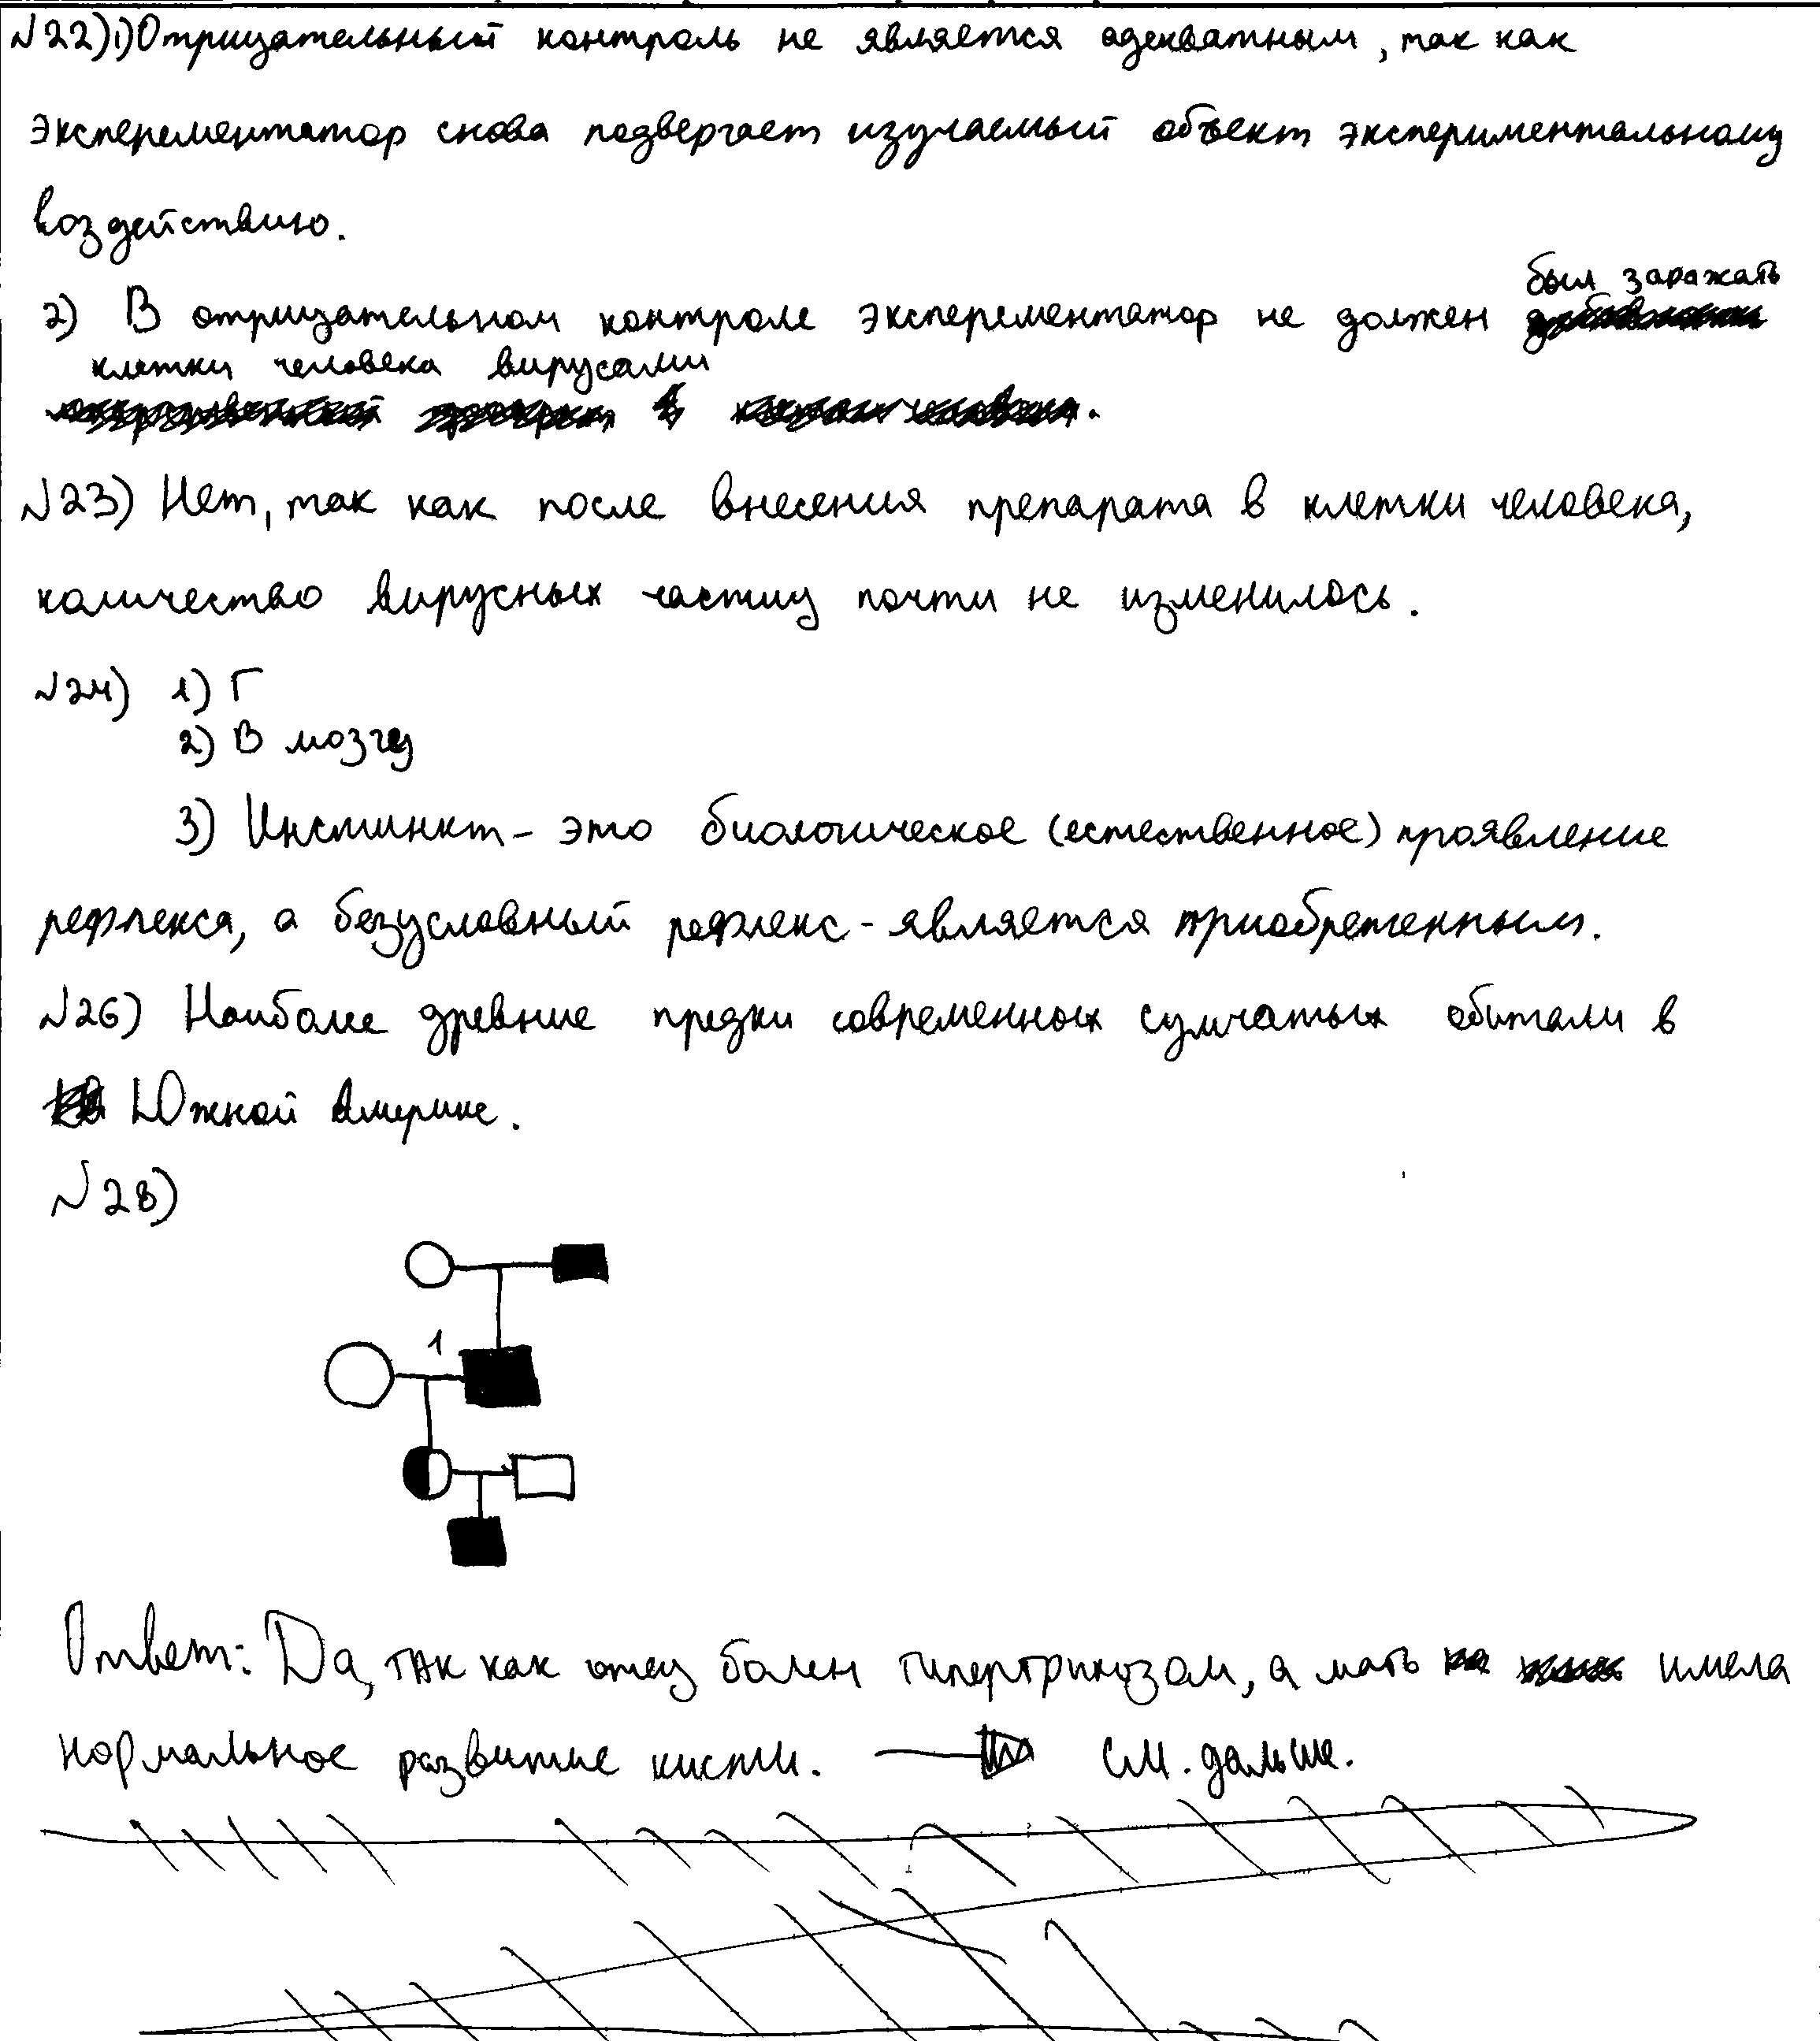 №22) 1) Отрицательный контроль не является адекватным, так как
эксперементатор снова подвергает изучаемый объект экспериментальному
воздействию.
был заражать
2) В отрицательном контроле эксперементатор не должен
клетки человека вирусами
.
№23) Нет, так как после внесения препарата в клетки человека,
количество вирусных частиц почти не изменилось.
№24) 1) Г
2) В мозгу
3) Инстинкт – это биологическое (естественное) проявление
рефлекса, а безусловный рефлекс – является приобретенным.
№26) Наиболее древние предки современных сумчатых обитали в
Южной Америке.
№28)
1
Ответ: Да, так как отец болен гипертрихозом, а мать имела
нормальное развитие кисти. см. дальше.